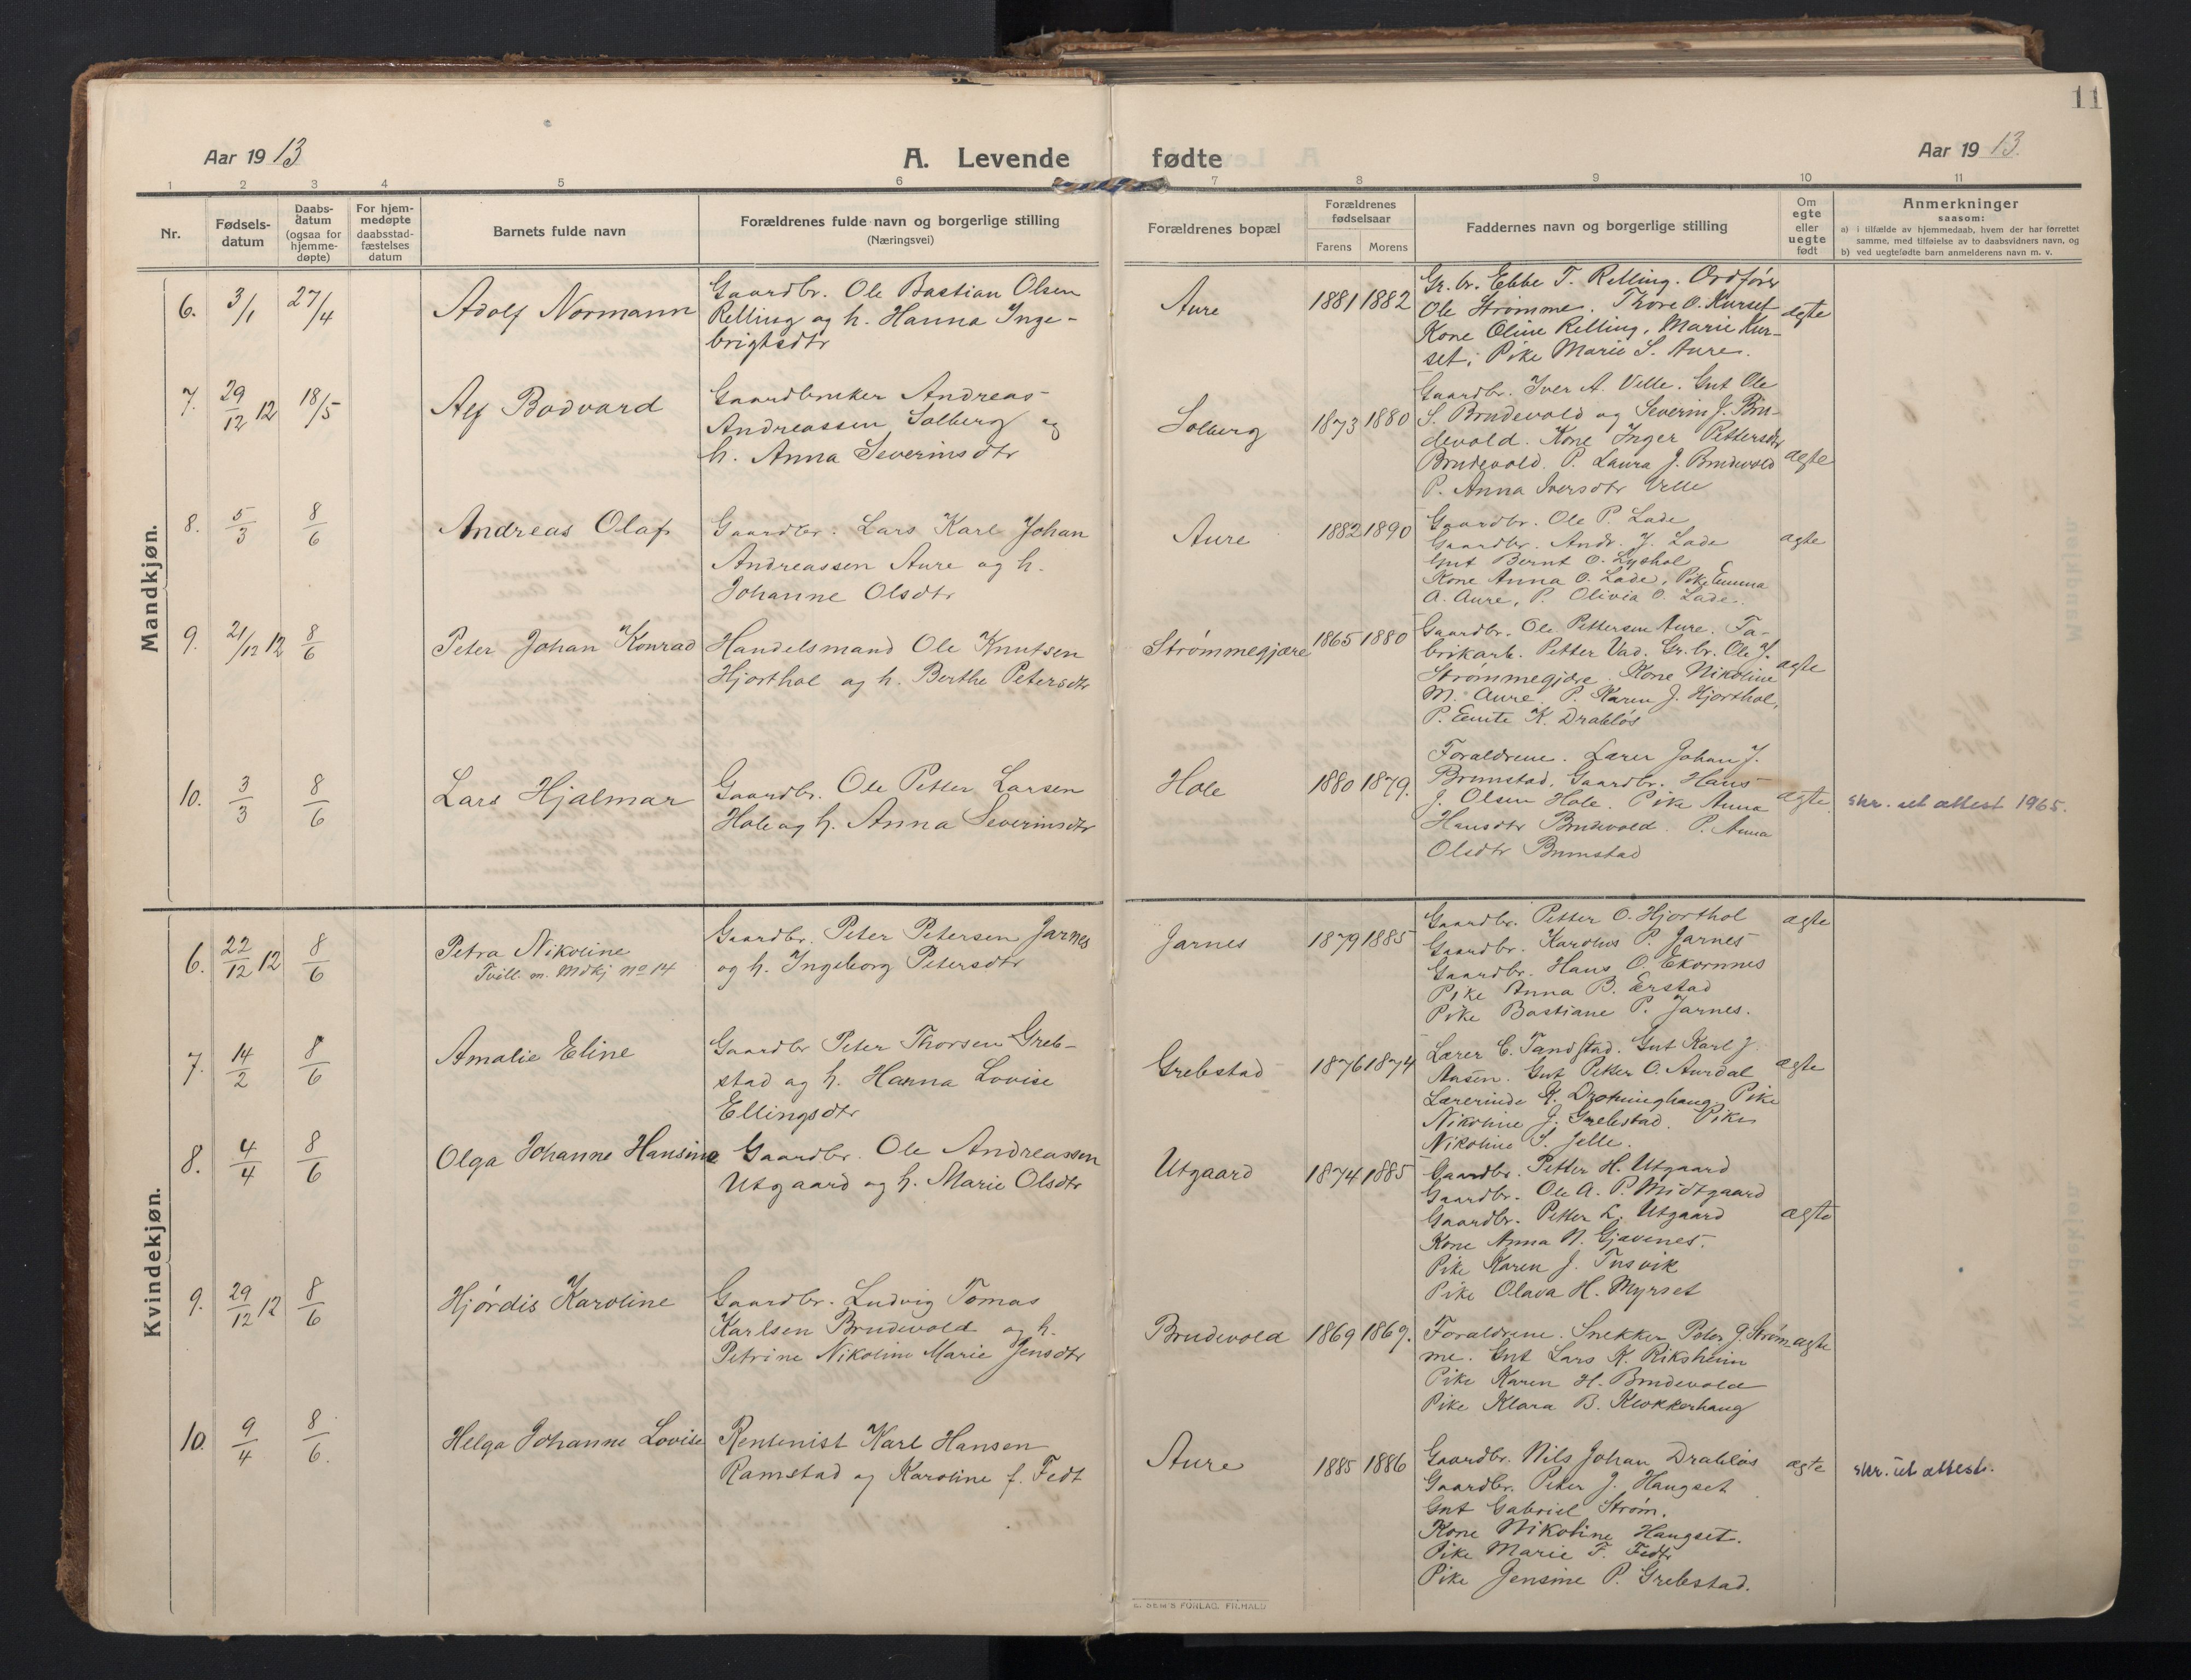 11
Aar 19 13
A. Levende fødte
Aar 19 13.
1 2 3 4 5 6 7 8 9 10 11
Nr.
Fødsels-
datum
Daabs-
datum
(ogsaa for
hjemme-
døpte)
For hjem-
medøpte
daabsstad-
fæstelses
datum
Barnets fulde navn
Forældrenes fulde navn og borgerlige stilling
(Næringsvei)
Forældrenes bopæl
Forældrenes
fødselsaar
Farens Morens
Faddernes navn og borgerlige stilling
Om
egte
eller
uegte
født
Anmerkninger
saasom:
a) i tilfælde av hjemmedaab, hvem der har forrettet
samme, med tilføielse av to daabsvidners navn, og
b) ved uegtefødte barn anmelderens navn m. v.
Mandkjøn.
6. 3/1 27/4
Adolf Normann
Gaardbr. Ole Bastian Olsen
Relling og h. Hanna Inge-
brigtsdtr
Aure
1881 1882
Gr. br. Ebbe T. Relling. Ordfører
Ole Strømme. Thore O. Kurset
Kone Oline Relling, Marie Kur-
set; Pike Marie S. Aure.
ægte
7. 29/12 12 18/5
Alf Bodvard
Gaardbruker Andreas
Andreassen Solberg og
h. Anna Severinsdtr
Solberg
1873 1880
Gaardbr. Iver A. Velle. Gut Ole
S. Brudevold og Severin J. Bru-
devold. Kone Inger Pettersdtr
Brudevold. P. Laura J. Brudevold
P. Anna Iversdtr Velle
ægte
8. 5/3 8/6
Andreas Olaf
Gaardbr. Lars Karl Johan
Andreassen Aure og h.
Johanne Olsdtr
Aure
1882 1890
Gaardbr. Ole P. Lade
Gaardbr. Andr. J. Lade
Gut Bernt O. Lyshol
Kone Anna O. Lade, Pike Emma
A. Aure, P. Olivia O. Lade.
ægte
9. 21/12 12 8/6
Peter Johan Konrad
Handelsmand Ole Knutsen
Hjorthol og h. Berthe Petersdtr
Strømmegjære
1865 1880
Gaardbr. Ole Pettersen Aure. Fa-
brikarb. Petter Vad. Gr. br. Ole J.
Strømmegjære. Kone Nikoline
M. Aure. P. Karen J. Hjorthol,
P. K. Drabløs
ægte
10. 3/3 8/6
Lars Hjalmar
Gaardbr. Ole Petter Larsen
Hole og h. Anna Severinsdtr
Hole
1880 1879.
Forældrene. Lærer Johan J.
Brunstad, Gaardbr. Hans
J. Olsen Hole. Pike Anna
Hansdtr Brudevold. P. Anna
Olsdtr Brunstad
ægte
skr. ut attest 1965.
Kvindekjøn.
6. 22/12 12 8/6
Petra Nikoline
Tvill. m. Mdkj no 14
Gaardbr. Peter Petersen Jarnes
og h. Ingeborg Petersdtr
Jarnes
1879 1885
Gaardbr. Petter O. Hjorthol
Gaardbr. Karolus P. Jarnes
Gaardbr. Hans O. Ekornnes
Pike Anna B. Erstad
Pike Bastiane P. Jarnes.
ægte
7. 14/2 8/6
Amalie Eline
Gaardbr Peter Thorsen Greb-
stad og h. Hanna Lovise
Ellingsdtr
Grebstad
1876 1874
Lærer C. Tandstad. Gut Karl J.
Aasen. Gut Petter O. Aurdal
Lærerinde K. Drotninghaug. Pike
Nikoline J. Grebstad. Pike
Nikoline S. Jelle.
ægte
8. 4/4 8/6
Olga Johanne Hansine
Gaardbr. Ole Andreassen
Utgaard og h. Marie Olsdtr
Utgaard
1874 1885
Gaardbr. Petter H. Utgaard
Gaardbr. Ole A. P. Midtgaard
Gaardbr. Petter L. Utgaard
Kone Anna N. Gjævenes.
Pike Karen J. Tusvik
Pike Olava H. Myrset
ægte
9. 29/12 12 8/6
Hjørdis Karoline
Gaardbr. Ludvig Tomas
Karlsen Brudevold og h.
Petrine Nikoline Marie Jensdtr
Brudevold
1869 1869.
Forældrene. Snekker Peter J. Strøm-
me. Gut Lars K. Riksheim
Pike Karen H. Brudevold
Pike Klara B. Klokkerhaug
ægte
10. 9/4 8/6.
Helga Johanne Lovise
Rentenist Karl Hansen
Ramstad og Karoline f. Fedt
Aure
1885 1886
Gaardbr. Nils Johan Drabløs
Gaardbr. Peter J. Haugset
Gut Gabriel Strøm.
Kone Nikoline Haugset.
Pike Marie F. Fedt
Pike Jensine P. Grebstad.
ægte
skr. ut attest.
E. SEM'S FORLAG, FR.HALD